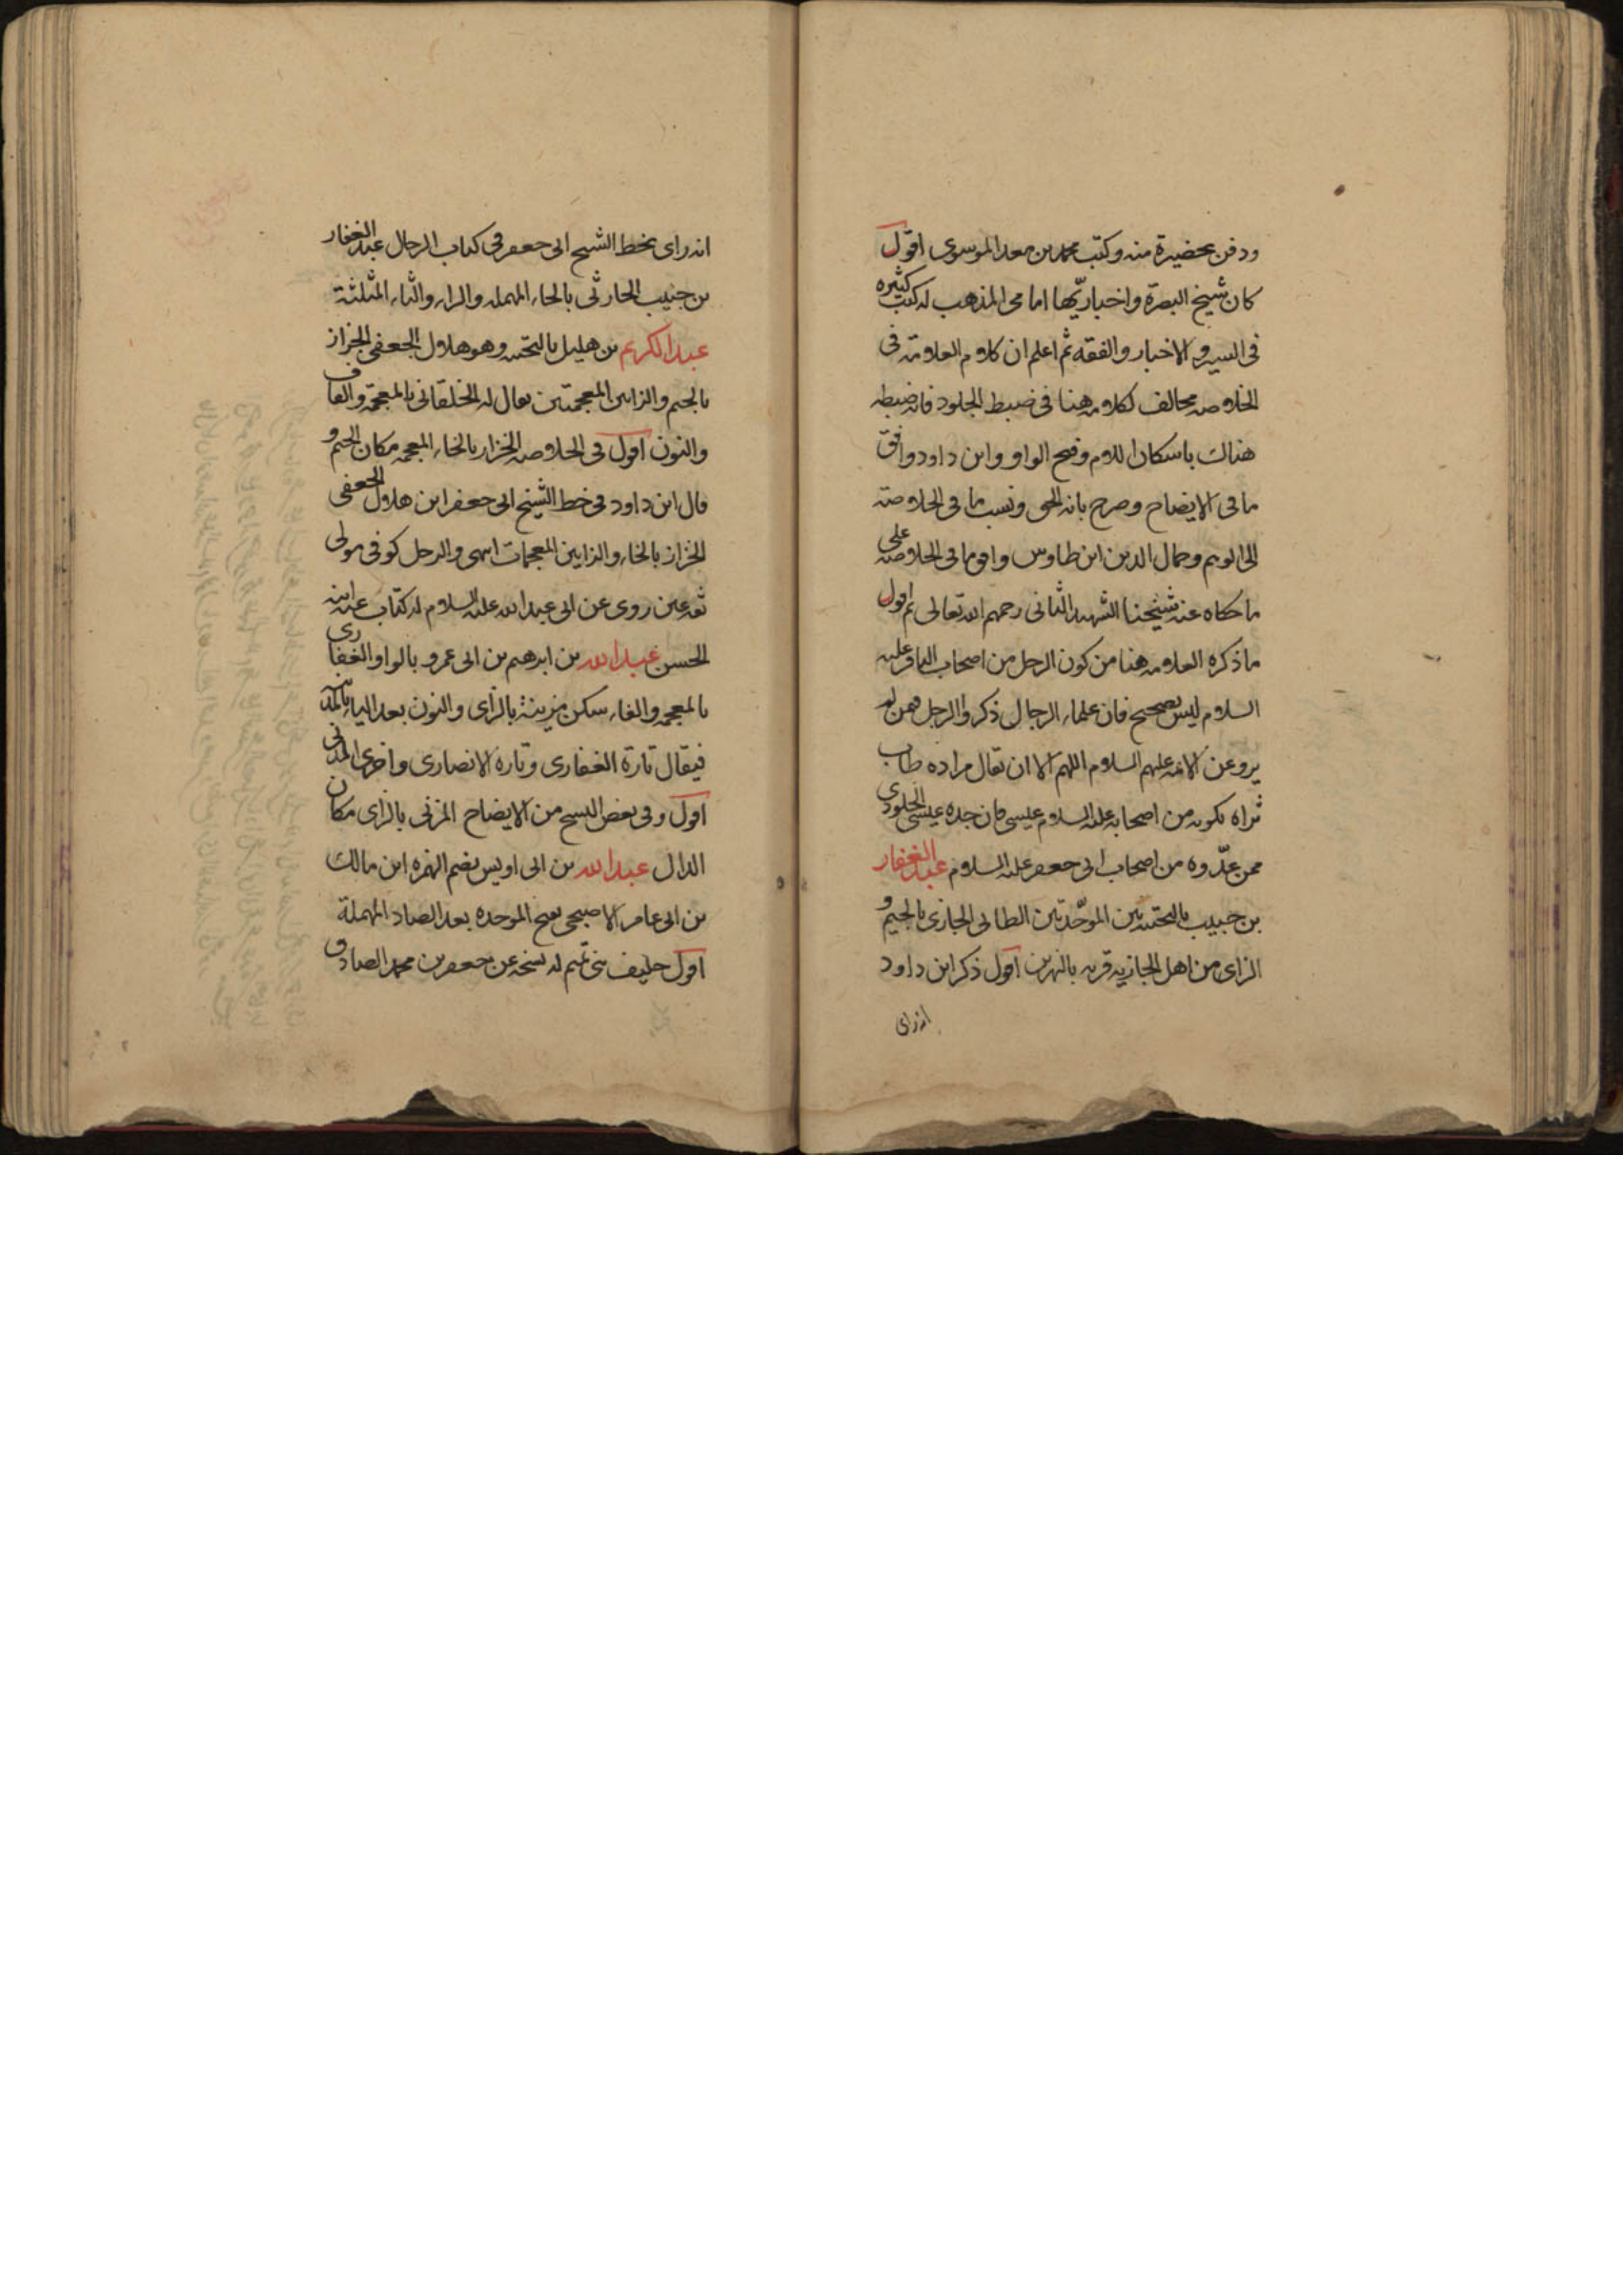 ودفن بحضيرة منه وكتب محمد بن معد الموسوى اقول
كان شيخ البصرة واخباريّها امامى المذهب له كتب كثيره
فى السير والاخبار والفقه ثم اعلم ان كلام العلامة فى
الخلاصه مخالف لكلامه هنا فى ضبط الجلود فانه ضبطه
هناك باسكان اللام وفتح الواو وابن داود وافق
ما فى الايضاح وصرح بانه الحق ونسب ما فى الخلاصة
الى الوهم وجمال الدين ابن طاوس وافق ما فى الخلاصه على
ما حكاه عنه شيخنا الشهيد الثانى رحمهم الله تعالى ثم اقول
ما ذكره العلامه هنا من كون الرجل من اصحاب الباقر عليه
السلام ليس بصحيح فان علماء الرجال ذكروا الرجل فمن لم
يرو عن الائمه عليهم السلام اللهم الا ان يقال مراده طاب
ثراه بكونه من اصحابه عليه السلام عيسى فان جده عيسى الجلودى
ممن عدّوه من اصحاب ابى جعفر عليه السلام عبد الغفار
بن حبيب بالتحتيه بين الموحّدتين الطائى الجازى بالجيم و
الزاى من اهل الجازيه قريه بالنهرين اقول ذكر ابن داود
انه راى
انه راى بخط الشيخ ابى جعفر فى كتاب الرجال عبد الغفار
بن حبيب الحارثى بالحاء المهمله والراء والثاء المثلثة
عبد الكريم بن هليل بالتحتيه وهو هلال الجعفى الجزاز
بالجيم والزايين المعجمتين يقال له الخلقانى بالمعجمة والقاف
والنون اقول فى الخلاصه الخزاز بالخاء المعجمه مكان الجيم و
قال ابن داود فى خط الشيخ ابى جعفر ابن هلال الجعفى
الخزاز بالخاء والزايين المعجمات انتهى والرجل كوفى مولى
ثقه عين روى عن ابى عبد الله عليه السلام له كتاب عنه ابنه
الحسن عبد الله بن ابرهيم بن ابى عمرو بالواو الغفارى
بالمعجمه والفاء سكن مزينة بالزاى والنون بعد الياء بالمدينه
فيقال تارة الغفارى وتاره الانصارى واخرى المدنى
اقول وفى بعض النسخ من الايضاح المزنى بالزاى مكان
الدال عبد الله بن ابى اويس بضم الهمزه ابن مالك
بن ابى عامر الاصبحى بفتح الموحده بعد الصاد المهملة
اقول حليف بنى تميم له نسخه عن جعفر بن محمد الصادق